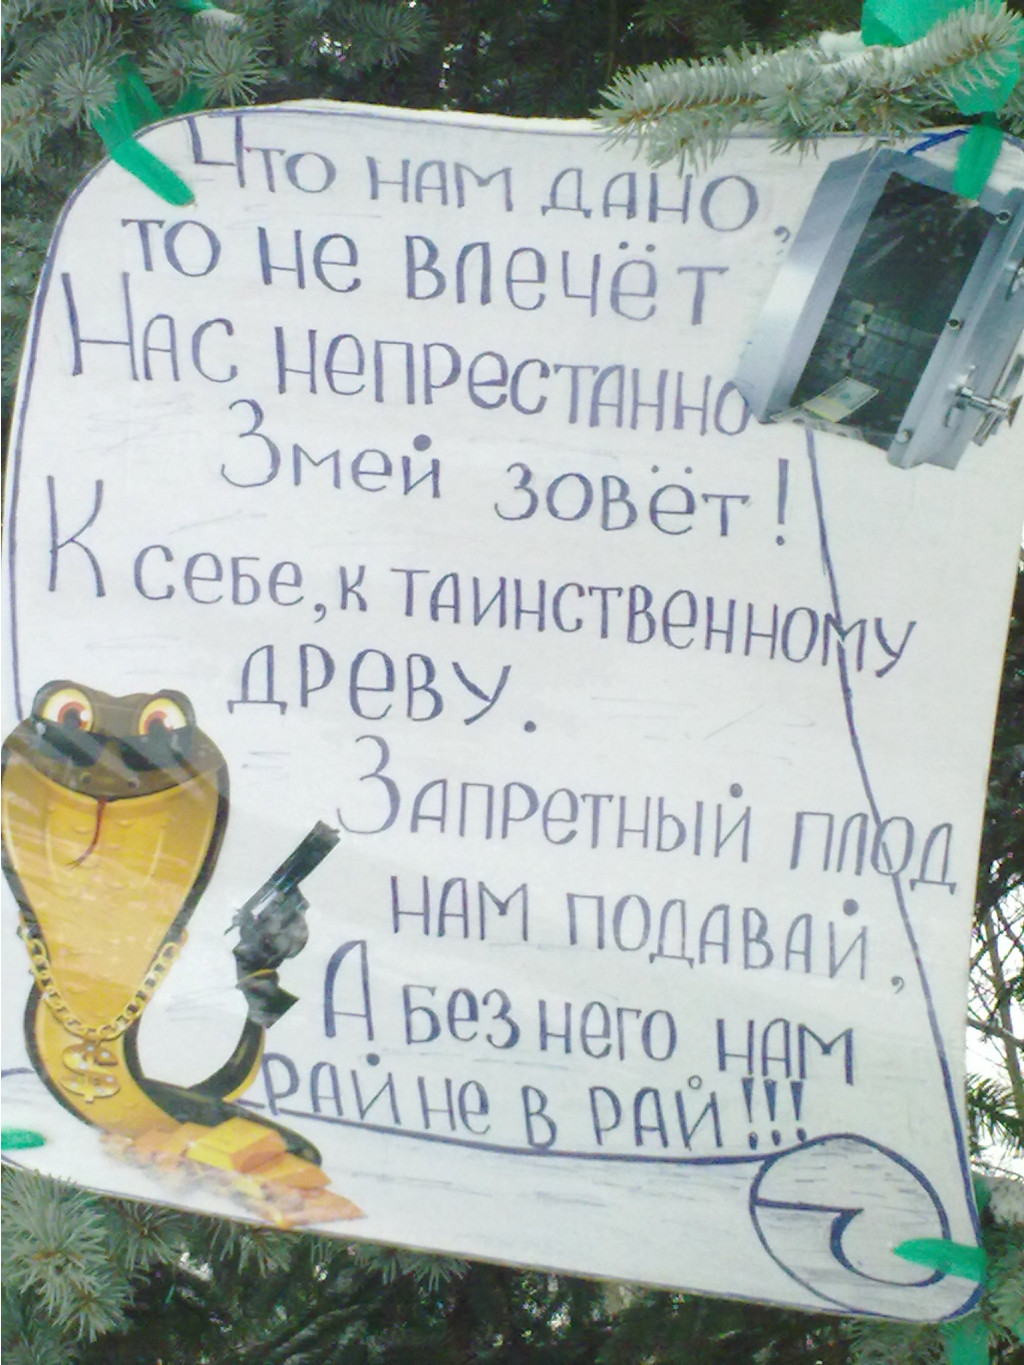 Что нам дано,
то не влечёт
Нас непрестанно
Змей зовёт!
К себе, к таинственному
древу.
Запретный плод
нам подавай,
А без него нам
рай не в рай!!!